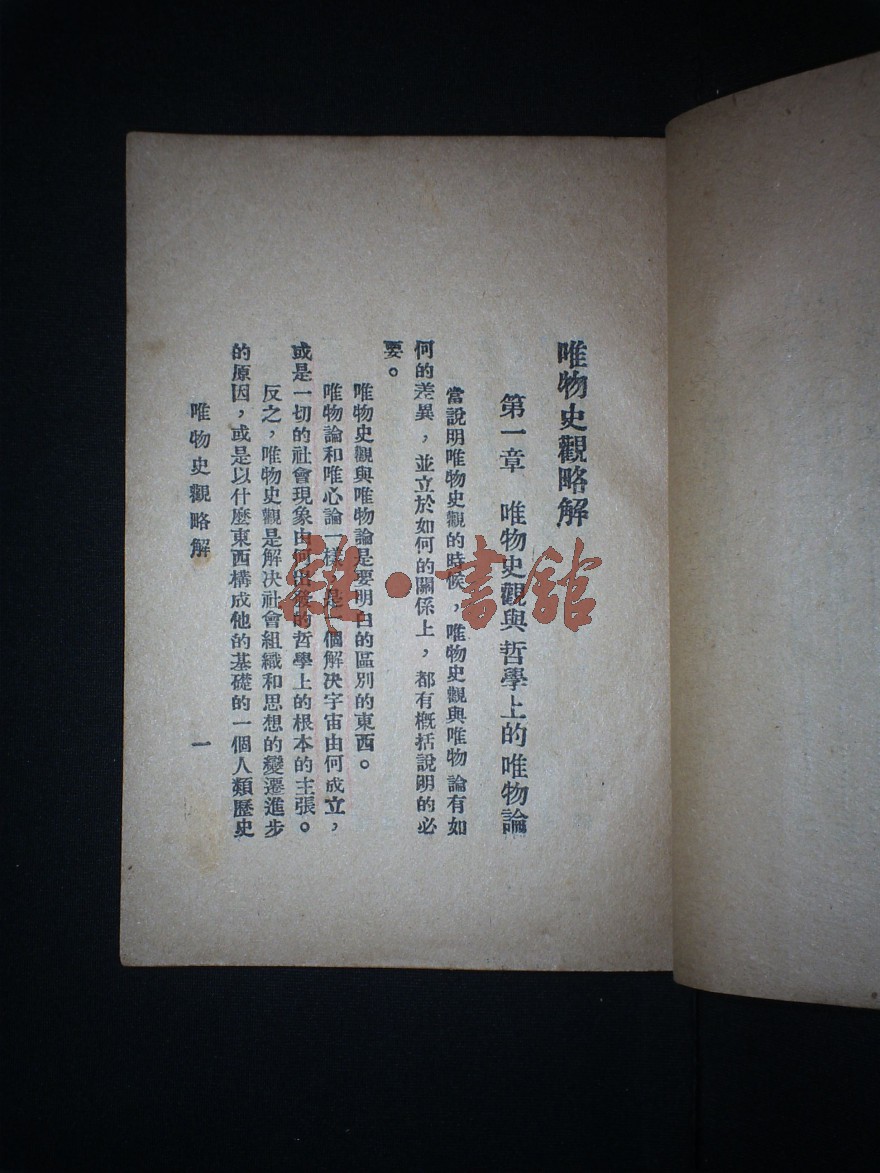 唯物史觀略解
第一章　唯物史觀與哲學上的唯物論
當說明唯物史觀的時候，唯物史觀與唯物論有如
何的差異，並立於如何的關係上，都有概括說明的必
要。
唯物史觀與唯物論是要明白的區別的東西。
唯物論和唯心論一樣，是一個解決宇宙由何成立，
或是一切的社會現象由何出發的哲學上的根本的主張。
反之，唯物史觀是解決社會組織和思想的變遷進步
的原因，或是以什麼東西構成他的基礎的一個人類歷史
唯物史觀略解
一
雜·書館